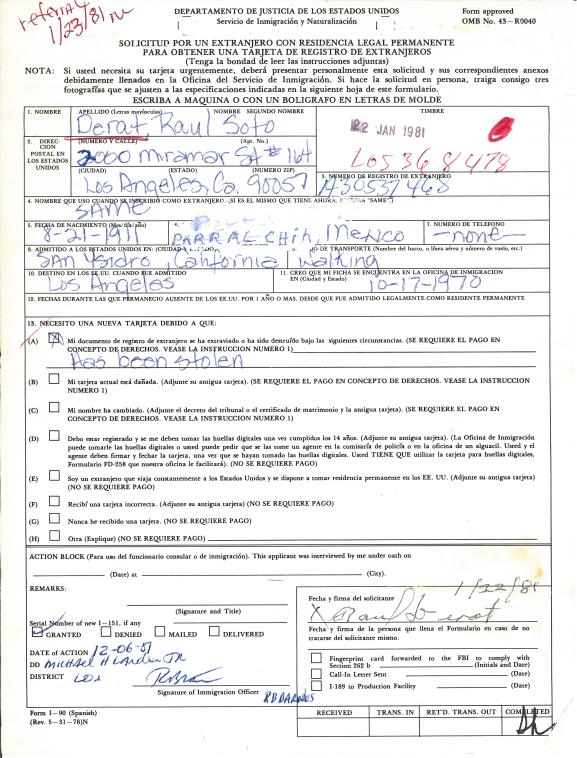 referral
1/23/81
DEPARTAMENTO DE JUSTICIA DE LOS ESTADOS UNIDOS
Servicio de Inmigración y Naturalización
Form approved
OMB No. 43-R0040
SOLICITUD POR UN EXTRANJERO CON RESIDENCIA LEGAL PERMANENTE
PARA OBTENER UNA TARJETA DE REGISTRO DE EXTRANJEROS
(Tenga la bondad de leer las instrucciones adjuntas)
NOTA: Si usted necesita su tarjeta urgentemente, deberá presentar personalmente esta solicitud y sus correspondientes anexos
debidamente llenados en la Oficina del Servicio de Inmigración. Si hace la solicitud en persona, traiga consigo tres
fotografías que se ajusten a las especificaciones indicadas en la siguiente hoja de este formulario.
ESCRIBA A MAQUINA O CON UN BOLIGRAFO EN LETRAS DE MOLDE
1. NOMBRE APELLIDO (Letras mayúsculas) NOMBRE SEGUNDO NOMBRE
Derat Raul Soto
TIMBRE
22 JAN 1981
LOS 368478
2. DIRECCION POSTAL EN LOS ESTADOS UNIDOS
(NUMERO Y CALLE) (Apt. No.)
2000 Miramar St # 164
(CIUDAD) (ESTADO) (NUMERO ZIP)
Los Angeles, Ca. 90057
3. NUMERO DE REGISTRO DE EXTRANJERO
A30537468
4. NOMBRE QUE USO CUANDO SE INSCRIBIO COMO EXTRANJERO. (SI ES EL MISMO QUE TIENE AHORA, "SAME")
SAME
5. FECHA DE NACIMIENTO (Mes/día/año)
8-21-1911
6.
PARRAL CHIH, Mexico
7. NUMERO DE TELEFONO
-none-
8. ADMITIDO A LOS ESTADOS UNIDOS EN: (CIUDAD Y ESTADO)
San Ysidro, California
9. DE TRANSPORTE (Nombre del barco, o línea aérea y número de vuelo, etc.)
Walking
10. DESTINO EN LOS EE.UU. CUANDO FUE ADMITIDO
Los Angeles
11. CREO QUE MI FICHA SE ENCUENTRA EN LA OFICINA DE INMIGRACION
EN (Ciudad y Estado)
10-17-1970
12. FECHAS DURANTE LAS QUE PERMANECIO AUSENTE DE LOS EE.UU. POR 1 AÑO O MAS, DESDE QUE FUE ADMITIDO LEGALMENTE COMO RESIDENTE PERMANENTE
13. NECESITO UNA NUEVA TARJETA DEBIDO A QUE:
(A) X Mi documento de registro de extranjero se ha extraviado o ha sido destruído bajo las siguientes circunstancias. (SE REQUIERE EL PAGO EN
CONCEPTO DE DERECHOS. VEASE LA INSTRUCCION NUMERO 1)
Has been stolen
(B) Mi tarjeta actual está dañada. (Adjunte su antigua tarjeta). (SE REQUIERE EL PAGO EN CONCEPTO DE DERECHOS. VEASE LA INSTRUCCION
NUMERO 1)
(C) Mi nombre ha cambiado. (Adjunte el decreto del tribunal o el certificado de matrimonio y la antigua tarjeta). (SE REQUIERE EL PAGO EN
CONCEPTO DE DERECHOS. VEASE LA INSTRUCCION NUMERO 1)
(D) Debo estar registrado y se me deben tomar las huellas digitales una vez cumplidos los 14 años. (Adjunte su antigua tarjeta). (La Oficina de Inmigración
puede tomarle las huellas digitales o usted puede pedir que se las tome un agente en la comisaría de policía o en la oficina de un alguacil. Usted y el
agente deben firmar y fechar la tarjeta, una vez que se hayan tomado las huellas digitales. Usted TIENE QUE utilizar la tarjeta para huellas digitales,
Formulario FD-258 que nuestra oficina le facilitará). (NO SE REQUIERE PAGO)
(E) Soy un extranjero que viaja constantemente a los Estados Unidos y se dispone a tomar residencia permanente en los EE. UU. (Adjunte su antigua tarjeta)
(NO SE REQUIERE PAGO)
(F) Recibí una tarjeta incorrecta. (Adjunte su antigua tarjeta) (NO SE REQUIERE PAGO)
(G) Nunca he recibido una tarjeta. (NO SE REQUIERE PAGO)
(H) Otra (Explique) (NO SE REQUIERE PAGO)
ACTION BLOCK (Para uso del funcionario consular o de inmigración). This applicant was interviewed by me under oath on
(Date) at (City).
REMARKS:
(Signature and Title)
Serial Number of new I-151, if any
GRANTED DENIED MAILED DELIVERED
DATE OF ACTION 12-06-81
DD MICHAEL H LANDON JR
DISTRICT LOS
Signature of Immigration Officer
RD BARNES
Fecha y firma del solicitante
1/22/81
X Raul Derat
Fecha y firma de la persona que llena el Formulario en caso de no
tratarse del solicitante mismo.
Fingerprint card forwarded to the FBI to comply with
Section 262 b (Initials and Date)
Call-In Letter Sent (Date)
I-189 to Production Facility (Date)
RECEIVED TRANS. IN RET'D. TRANS. OUT COMPLETED
Form I-90 (Spanish)
(Rev. 5-31-78)N